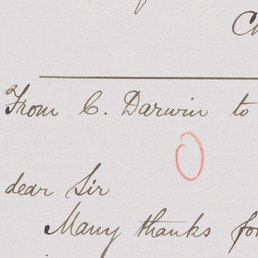 From C. Darwin to
dear Sir
Many thanks for